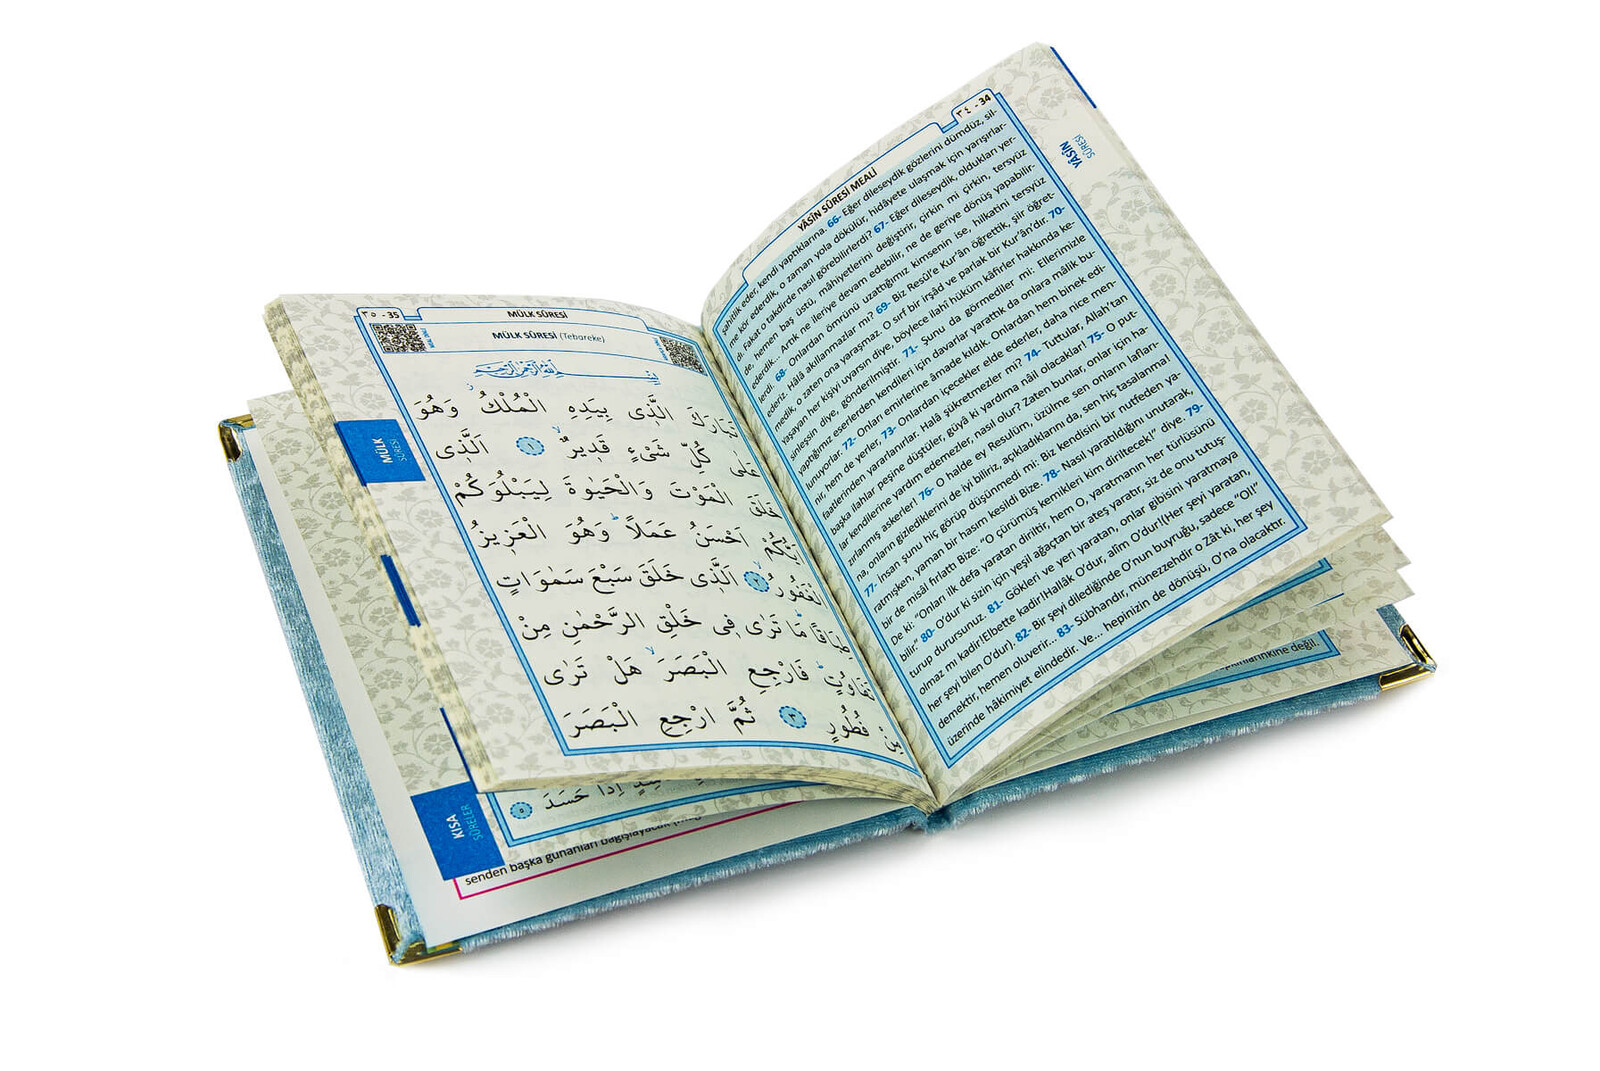 ٣٥ - 35
MÜLK SÛRESİ
MÜLK SÛRESİ (Tebareke)
بِسْــــــمِ اللّٰهِ الرَّحْمٰنِ الرَّحِيمِ
تَبَارَكَ الَّذٖى بِيَدِهِ الْمُلْكُ وَهُوَ
عَلٰى كُلِّ شَىْءٍ قَدٖيرٌ ۙ ١ اَلَّذٖى
خَلَقَ الْمَوْتَ وَالْحَيٰوةَ لِيَبْلُوَكُمْ
اَيُّكُمْ اَحْسَنُ عَمَلًا ؕ وَهُوَ الْعَزٖيزُ
الْغَفُورُ ۙ ٢ اَلَّذٖى خَلَقَ سَبْعَ سَمٰوَاتٍ
طِبَاقًا ؕ مَا تَرٰى فٖى خَلْقِ الرَّحْمٰنِ مِنْ
تَفَاوُتٍ ؕ فَارْجِعِ الْبَصَرَ ۙ هَلْ تَرٰى
مِنْ فُطُورٍ ٣ ثُمَّ ارْجِعِ الْبَصَرَ
MÜLK
SÛRESİ
KISA
SÛRELER
اِذَا حَسَدَ ٥
senden başka günahları bağışlayacak
٣٤ - 34
YÂSÎN SÛRESİ MEALİ
YÂSÎN
SÛRESİ
şahitlik eder, kendi yaptıklarına. 66- Eğer dileseydik gözlerini dümdüz, sil-
me kör ederdik, o zaman yola dökülür, hidâyete ulaşmak için yarışırlar-
dı. Fakat o takdirde nasıl görebilirlerdi? 67- Eğer dileseydik, oldukları yer-
de, hemen baş üstü, mâhiyetlerini değiştirir, çirkin mi çirkin, tersyüz
ederdik... Artık ne ileriye devam edebilir, ne de geriye dönüş yapabilir-
lerdi. 68- Onlardan ömrünü uzattığımız kimsenin ise, hilkatini tersyüz
ederiz. Hâlâ akıllanmazlar mı? 69- Biz Resûl'e Kur'ân öğrettik, şiir öğret-
medik, o zaten ona yaraşmaz. O sırf bir irşâd ve parlak bir Kur'ân'dır. 70-
yaşayan her kişiyi uyarsın diye, böylece ilahî hüküm kâfirler hakkında ke-
sinleşsin diye, gönderilmiştir. 71- Şunu da görmediler mi: Ellerimizle
yaptığımız eserlerden kendileri için davarlar yarattık da onlara mâlik bu-
lunuyorlar. 72- Onları emirlerine âmade kıldık. Onlardan hem binek edi-
nir, hem de yerler, 73- Onlardan içecekler elde ederler, daha nice men-
faatlerinden yararlanırlar. Halâ şükretmezler mi? 74- Tuttular, Allah'tan
başka ilahlar peşine düştüler, güyâ ki yardıma nâil olacaklar! 75- O put-
lar kendilerine yardım edemezler, nasıl olur? Zaten bunlar, onlar için ha-
zırlanmış askerler! 76- O halde ey Resulüm, üzülme sen onların lafları-
na, onların gizlediklerini de iyi biliriz, açıkladıklarını da, sen hiç tasalanma!
77- İnsan şunu hiç görüp düşünmedi mi: Biz kendisini bir nutfeden ya-
ratmışken, yaman bir hasım kesildi Bize. 78- Nasıl yaratıldığını unutarak,
bir de misâl fırlattı Bize: "O çürümüş kemikleri kim diriltecek!" diye. 79-
De ki: "Onları ilk defa yaratan diriltir, hem O, yaratmanın her türlüsünü
bilir." 80- O'dur ki sizin için yeşil ağaçtan bir ateş yaratır, siz de onu tutuş-
turup durursunuz. 81- Gökleri ve yeri yaratan, onlar gibisini yaratmaya
olmaz mı kadir(Elbette kadir)Hallâk O'dur, alîm O'dur!(Her şeyi yaratan,
her şeyi bilen O'dur). 82- Bir şeyi dilediğinde O'nun buyruğu, sadece "Ol!"
demektir, hemen oluverir... 83- Sübhandır, münezzehdir o Zât ki, her şey
üzerinde hâkimiyet elindedir. Ve... hepinizin de dönüşü, O'na olacaktır.
değil.